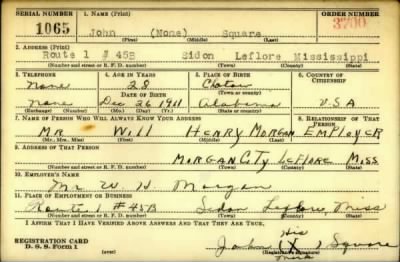 SERIAL NUMBER 1. NAME (Print) ORDER NUMBER
1065 John (None) Square 3700
(First) (Middle) (Last)
2. ADDRESS (Print)
Route 1 # 45B Sidon Leflore Mississippi
(Number and street or R. F. D. number) (Town) (County) (State)
3. TELEPHONE 4. AGE IN YEARS 5. PLACE OF BIRTH 6. COUNTRY OF CITIZENSHIP
None 28
DATE OF BIRTH (Town or county)
None Dec 26 1911 Alabama USA
(Exchange) (Number) (Mo.) (Day) (Yr.) (State or country)
7. NAME OF PERSON WHO WILL ALWAYS KNOW YOUR ADDRESS 8. RELATIONSHIP OF THAT PERSON
MR. WILL HENRY MORGAN EMPLOYER
(Mr., Mrs., Miss) (First) (Middle) (Last)
9. ADDRESS OF THAT PERSON
MORGAN CITY LEFLORE MISS.
(Number and street or R. F. D. number) (Town) (County) (State)
10. EMPLOYER'S NAME
Mr W. H. Morgan
11. PLACE OF EMPLOYMENT OR BUSINESS
Route 1 # 45B Sidon Leflore Miss
(Number and street or R. F. D. number) (Town) (County) (State)
I AFFIRM THAT I HAVE VERIFIED ABOVE ANSWERS AND THAT THEY ARE TRUE.
His
REGISTRATION CARD John (X) Square
D. S. S. Form 1 (Registrant's signature)
mark